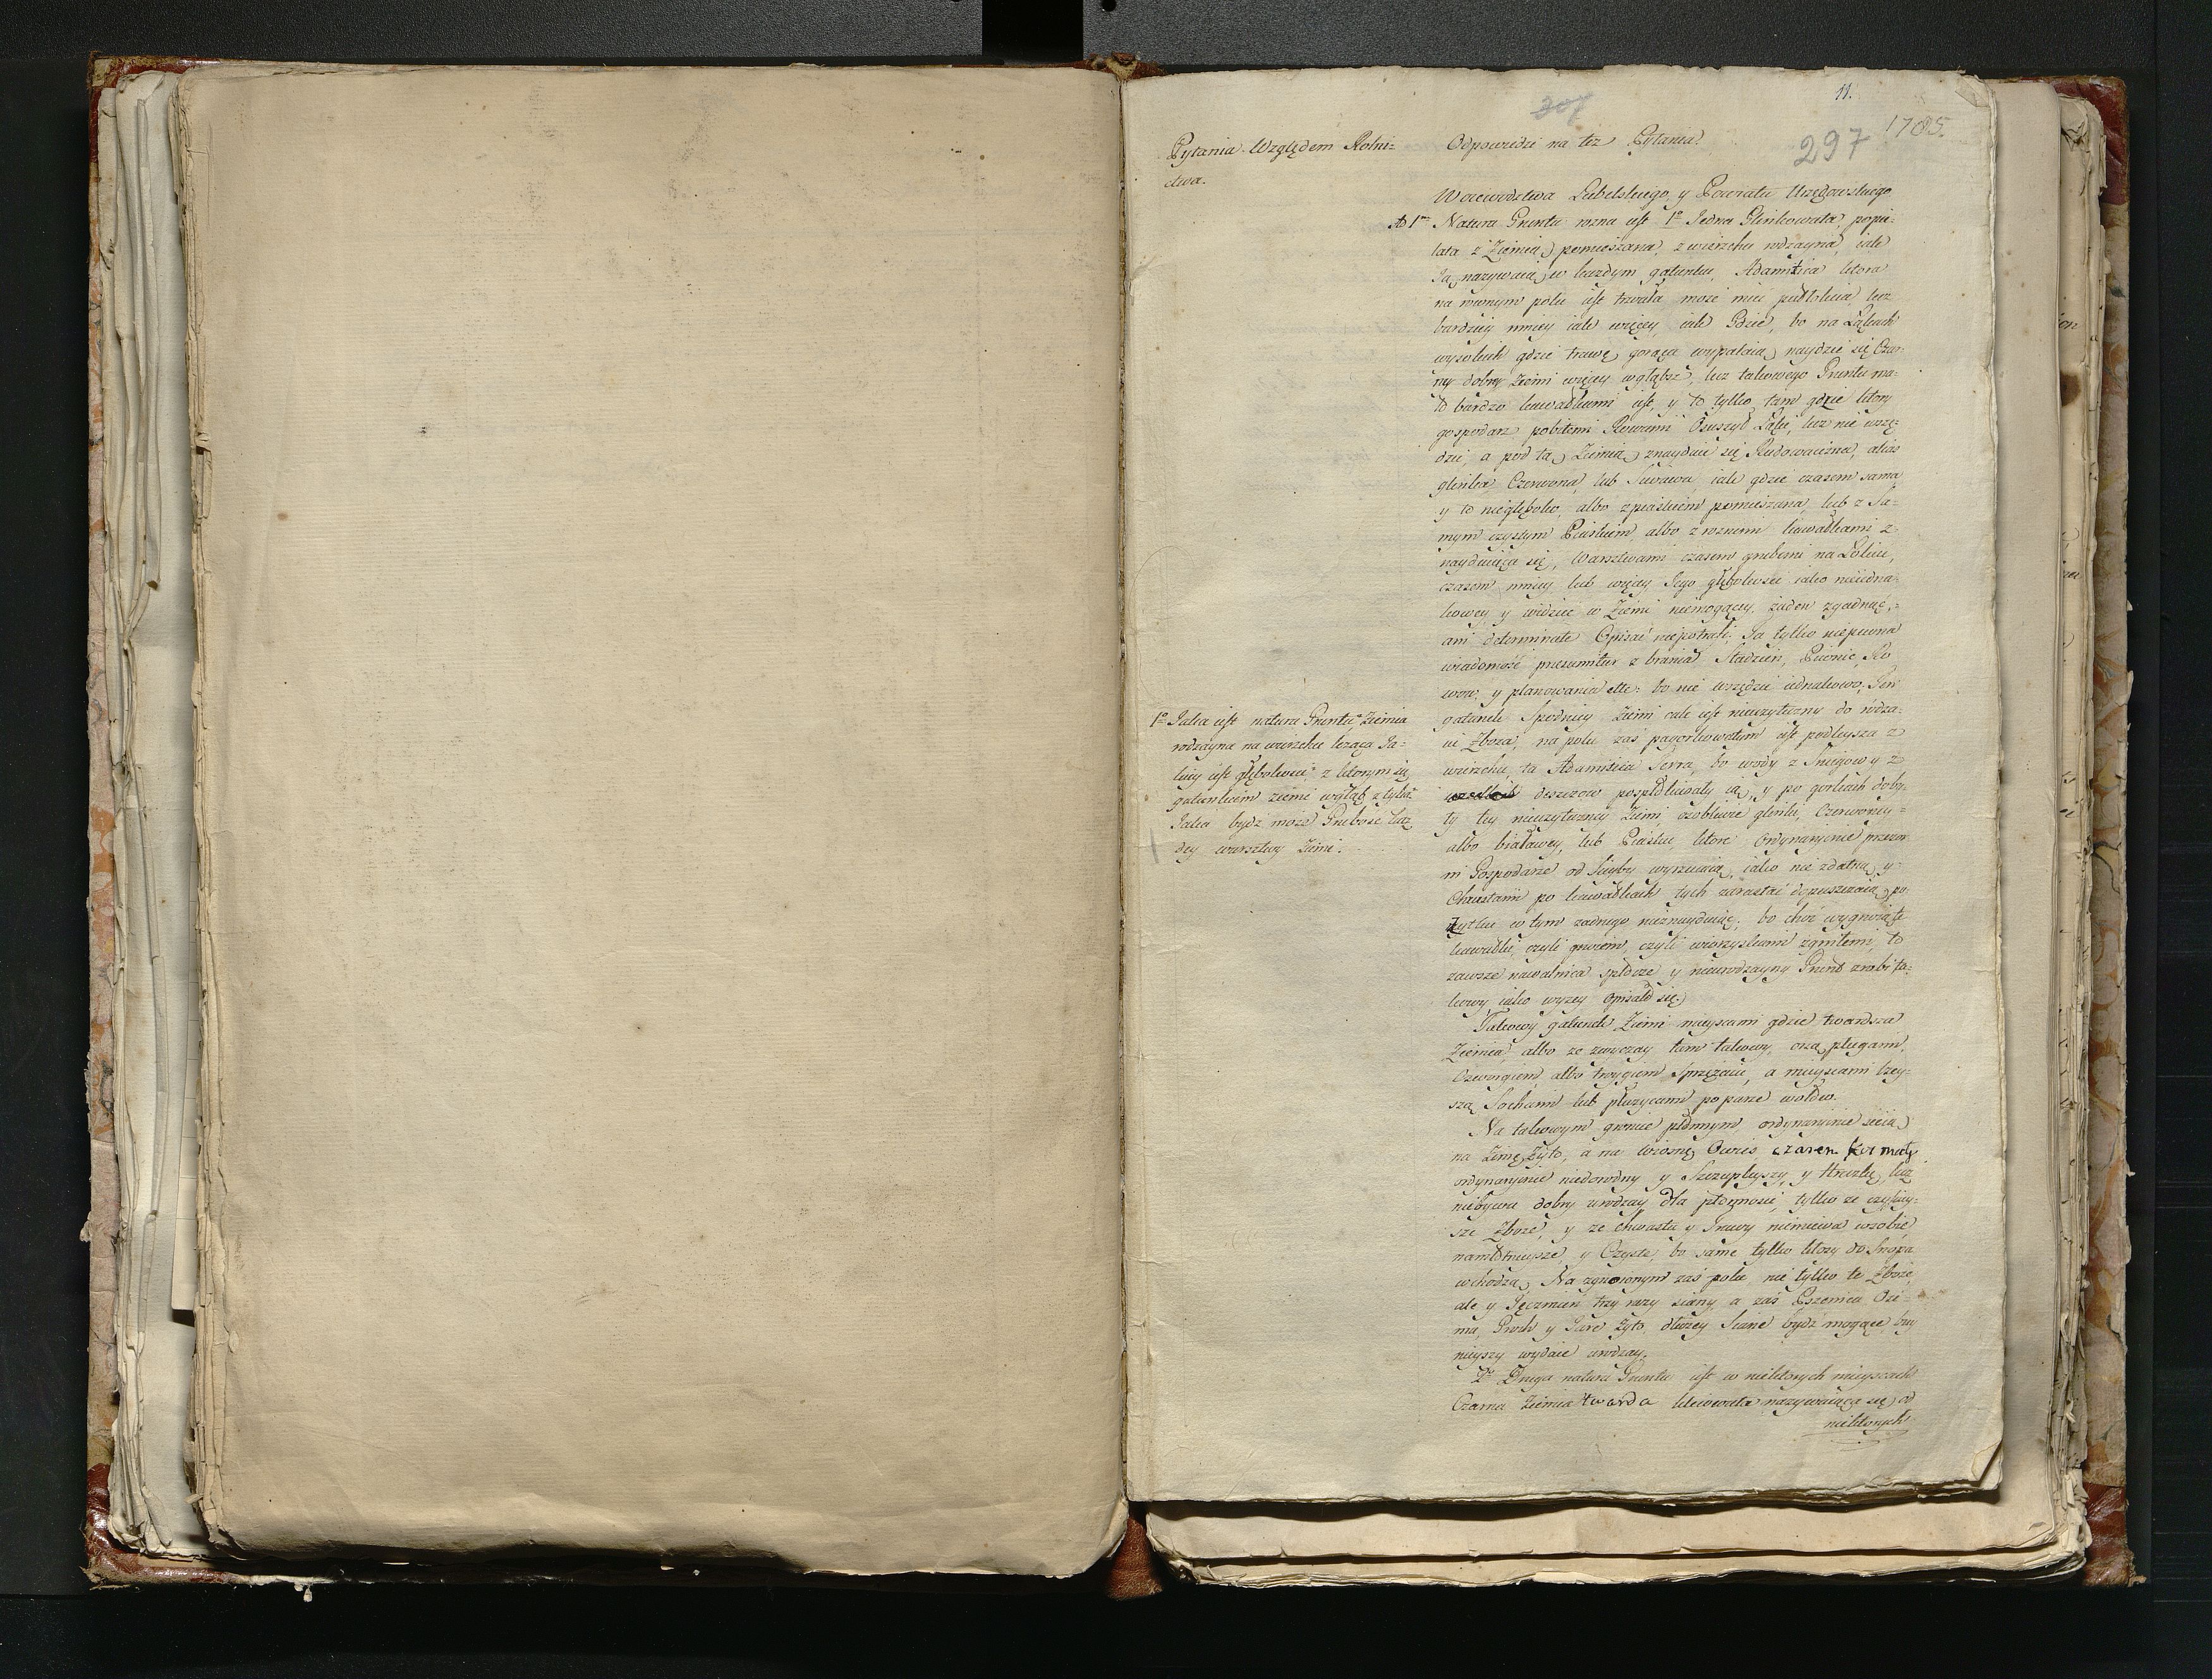 11.
307
297
1785.
Pytania Względem Rolni=
ctwa.
Odpowiedzi na tez Pytania.
Woiewodztwa Lubelskiego y Powiatu Urzędowskiego
Ad 1m Natura Gruntu rozna iest 1o Jedna Glinkowata, popie-
lata z Ziemią pomieszana, z wierzchu rodzayna, iak
Ją nazywaią w kazdym gatunku, Adamiczka ktora
na rownym polu iest trwała moze miec pułłokcia lecz
bardziey mniey iak więcey iak Gdzie, bo na Łąkach
wysokich gdzie trawę gorąca wypalaią naydzie się Czar-
ney dobrey Ziemi więcey wgłąbsz, lecz takowego Gruntu ma-
ło bardzo kawałkami iest, y to tylko tam gdzie ktory
gospodarz pobitemi Rowami Osuszył Łąki, lecz nie wszę-
dzie, a pod tą Ziemią znayduie się Rudowacizna, alias
glinka Czerwona, lub Surowa iak gdzie czasem sama
y to niegłęboko, albo zpiaskiem pomieszana, lub z Sa=
mym czystym Piaskiem albo z roznemi kawałkami z-
nayduiąca się, Warsztwami czasem grubemi na Łokiec,
czasem mniey lub więcey Jego głębokosci iako nieiedna-
kowey y widziec w Ziemi niemogącey, zaden zgadnąć,=
ani determinate Opisać niepotrafi; Ta tylko niepewna
wiadomość presumitur z brania Stadzien, Piwnic, Ro
wow, y planowania etc: bo nie wszędzie iednakowo; Ten
gatunek Spodniey Ziemi cale iest nieuzyteczny do rodza-
iu Zboza, na polu zaś pagorkowatym iest podleysza z
wierzchu ta Adamiczka Terra, bo wody z Sniegow y z
deszczow pospłokiwały ią, y po gorkach doby-
ty tey nieuzyteczney Ziemi, osobliwie glinki, Czerwoney=
albo białawey, lub Piasku, ktore ordynaryinie przezor
ni Gospodarze od Siewby wyrzucaią, iako nie zdatną y
Chrustami po kawałkach tych zarastać dopuszczaią, po-
zytku w tym zadnego nieznayduiąc; bo choć wygnoią te
kawałki, czyli gnoiem, czyli wiorzyskami zgniłemi, to
zawsze nawalnica spłocze y nieurodzayny Grunt zrobi ta-
kowy iako wyzey opisało się.
1o Jaka iest natura Gruntu? Ziemia
rodzayna na wierzchu leząca Ja=
kiey iest głębokosci? z ktorym się
gatunkiem ziemi wgłąb styka?
Jaka bydz moze Grubość kaz
dey warsztwy Ziemi.
Takowy gatunek Ziemi mieyscami gdzie twardsza
Ziemia, albo ze zwyczay tam takowy, orzą plugami,
Czworgiem, albo troygiem Sprzęzaiu, a mieyscami lzey-
szą Sochami lub płuzycami po parze wołow.
Na takowym groncie płonnym ordynaryinie sieią
na Zimę Zyto, a na wiosnę Owies, czasem
ordynaryinie niedorodny y Szczupleyszy, y Hreczkę, lecz
niebywa dobry urodzay dla płonnosci, tylko ze czyściey-
sze Zboze, y ze chwastu y Trawy niemiewa wsobie,
namłotnieysze y Czyste, bo same tylko kłosy do Snopa
wchodzą, Na zgnoionym zaś polu, nie tylko te Zboze,
ale y Jęczmień trzy razy siany, a zaś Pszenica Ozi-
ma, Groch y Jare Zyto, dłuzey Siane bydz mogące, buy
nieyszy wydaie urodzay.
2o Druga natura Gruntu iest w niektorych mieyscach
Czarna Ziemia twarda kleiowata nazywaiąca się od
niektorych